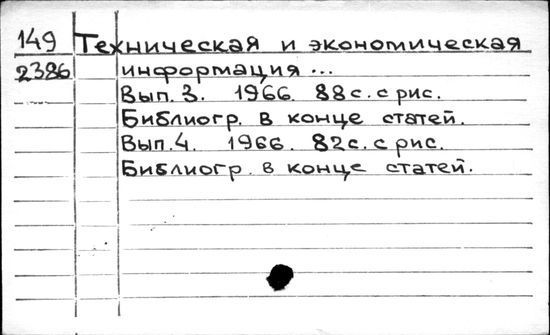 149 Техническая и экономическая
2386 информация ...
Вып. 3. 1966. 88 с. с рис.
Библиогр. в конце статей.
Вып. 4. 1966. 82 с. с рис.
Библиогр. в конце статей.